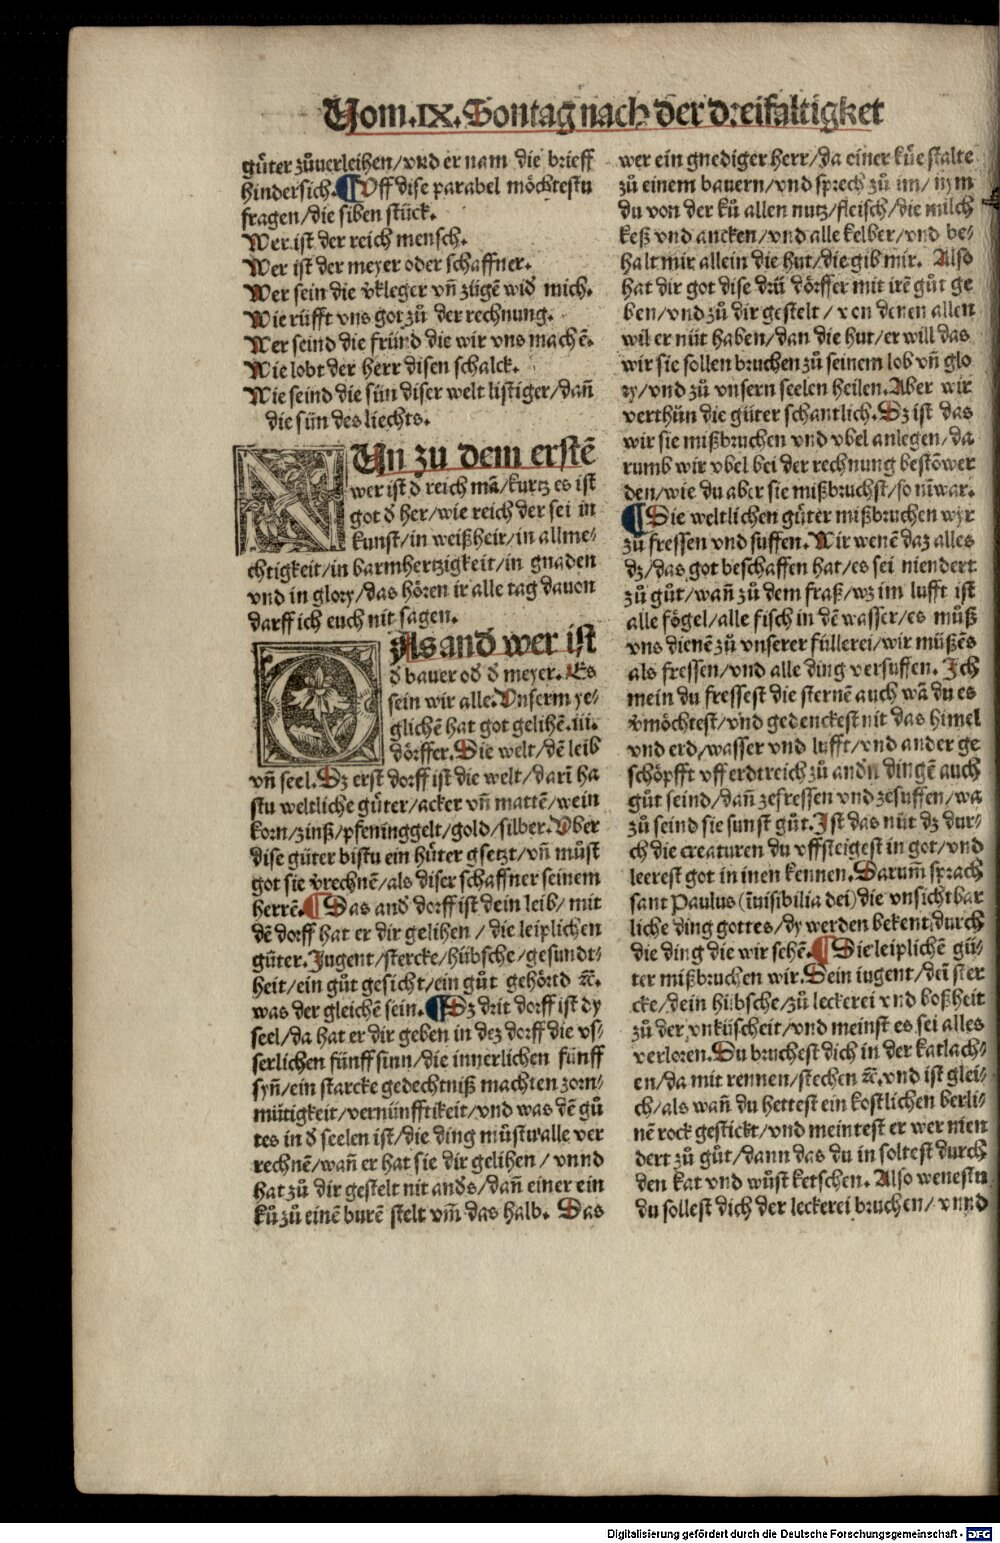 Vom.IX.Sontag nach der dreifaltigket
gůter zůuerleihen/vnd er nam die brieff
hindersich.¶Vff dise parabel möchtestu
fragen/die siben stück.
Wer ist der reich mensch.
Wer ist der meyer oder schaffner.
Wer sein die v̈kleger vñ zügẽ wid̕ mich.
Wie rüfft vns got zů der rechnung.
Wer seind die fründ die wir vns machẽ.
Wie lobt der herr disen schalck.
Wie seind die sün diser welt listiger/dañ
die sün des liechts.
NUn zu dem erstẽ
wer ist d̕ reich mã/kurtz es ist
got d̕ her/wie reich der sei in
kunst/in weißheir/in allme⸗
chtigkeit/in barmhertzigkeit/in gnaden
vnd in glory/das hören ir alle tag dauon
darff ich euch nit sagen.
DAs and̕ wer ist
d̕ bauer od̕ d̕ meyer. Es
sein wir alle.Vnserm ye⸗
glichẽ hat got gelihẽ.iii.
dörffer.Die welt/dẽ leib
vñ seel.Dz erst dorff ist die welt/darĩ ha
stu weltliche güter/acker vñ mattẽ/wein
korn/zinß/pfeninggelt/gold/silber.Vber
dise güter bistu ein hüter gsetzt/vñ můst
got sie v̕rechnẽ/als diser schaffner seinem
herrẽ.¶Das and̕ dorff ist dein leib/ mit
dẽ dorff hat er dir gelihen / die leiplichen
güter. Jugent/stercke/hübsche/gesundt⸗
heit/ein gůt gesicht/ein gůt gehörtd ꝛc̃.
was der gleichẽ sein.¶Dz drit dorff ist dy
seel/da hat er dir geben in dez dorff die vs⸗
serlichen fünff sinn/die innerlichen fünff
syñ/ein starcke gedechtniß machten zorn⸗
mütigkeit/vernünfftikeit/vnd was dẽ gů
tes in d̕ seelen ist/die ding můstu alle ver
rechnẽ/wañ er hat sie dir gelihen / vnnd
hat zů dir gestelt nit and̕s/dañ einer ein
ků zů einẽ burẽ stelt vm̃ das halb. Das
wer ein gnediger herr/da einer küe stalte
zů einem bauern/vnd sprech zů im/ nym
du von der ků allen nutz/fleisch/die milch
keß vnd ancken/vnd alle kelber/vnd be⸗
halt mir allein die hut/die gib mir. Also
hat dir got dise drü dörffer mit irẽ gůt ge
ben/vnd zů dir gestelt / von denen allen
wil er nüt haben/dan die hut/er will das
wir sie sollen bruchen zů seinem lob vñ glo
ry/vnd zů vnsern seelen heilen.Aber wir
verthün die güter schantlich.Dz ist das
wir sie mißbruchen vnd vbel anlegen/da
rumb wir vbel bei der rechnung bestõ wer
den/wie du aber sie mißbruchst/so nĩ war.
¶Die weltlichen güter mißbruchen wyr
zů fressen vnd suffen.Wir wenẽ daz alles
dz/das got beschaffen hat/es sei niendert
zů gůt/wañ zů dem fraß/wz im lufft ist
alle fögel/alle fisch in dẽ wasser/es můß
vns dienẽ zů vnserer füllerei/wir müßẽs
als fressen/vnd alle ding versuffen. Ich
mein du fressest die sternẽ auch wã du es
v̕möchtest/vnd gedenckest nit das himel
vnd erd/wasser vnd lufft/vnd ander ge
schöpfft vff erdtreich zů and̕n dingẽ auch
gůt seind/dañ zefressen vnd zesuffen/wa
zů seind sie sunst gůt.Ist das nüt dz dur⸗
ch die creaturen du vffsteigest in got/vnd
leerest got in inen kennen.Darum̃ sprach
sant Paulus (ĩuisibilia dei) die vnsichtbar
liche ding gottes/dy werden bekent durch
die ding die wir sehẽ.¶Die leiplichẽ gü⸗
ter mißbruchen wir.Dein iugent/dei ster
cke/dein hübsche/zů leckerei vnd boßheit
zů der vnküscheit/vnd meinst es sei alles
verloren.Du bruchest dich in der katlach⸗
en/da mit rennen/stechen ꝛc̃.vnd ist glei⸗
ch/als wañ du hettest ein kostlichen berli⸗
nẽ rock gestickt/vnd meintest er wer nien
dert zů gůt/dann das du in soltest durch
den kat vnd wůst ketschen. Also wenestu
du sollest dich der leckerei bruchen/ vnnd
Digitalisierung gefördert durch die Deutsche Forschungsgemeinschaft - DFG